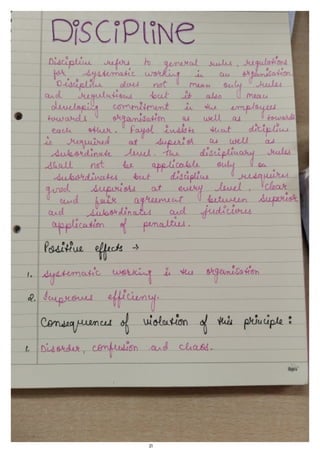 DISCIPLINE
Discipline refers to general rules, regulations
for systematic working in an organisation.
Discipline does not mean only rules
and regulations but it also mean
developing commitment in the employees
towards organisation as well as towards
each other. Fayol insists that dicipline
is required at superior as well as
subordinate level. The disciplinary rules
shall not be applicable only on
subordinates but discipline resquires
good superiors at every level, clear
and fair agreement between superior
and subordinates and judicious
application of penalties.
Positive effects →
1. Systematic working in the organisation
2. Improves efficiency.
Consequences of violation of this principle :
1. Disorder, confusion and chaos.
21